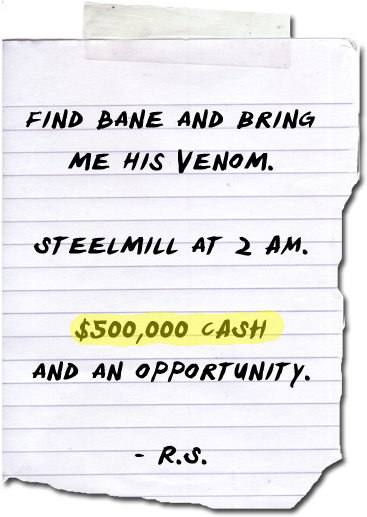 FIND BANE AND BRING
ME HIS VENOM.
STEELMILL AT 2 AM.
$500,000 CASH
AND AN OPPORTUNITY.
- R.S.